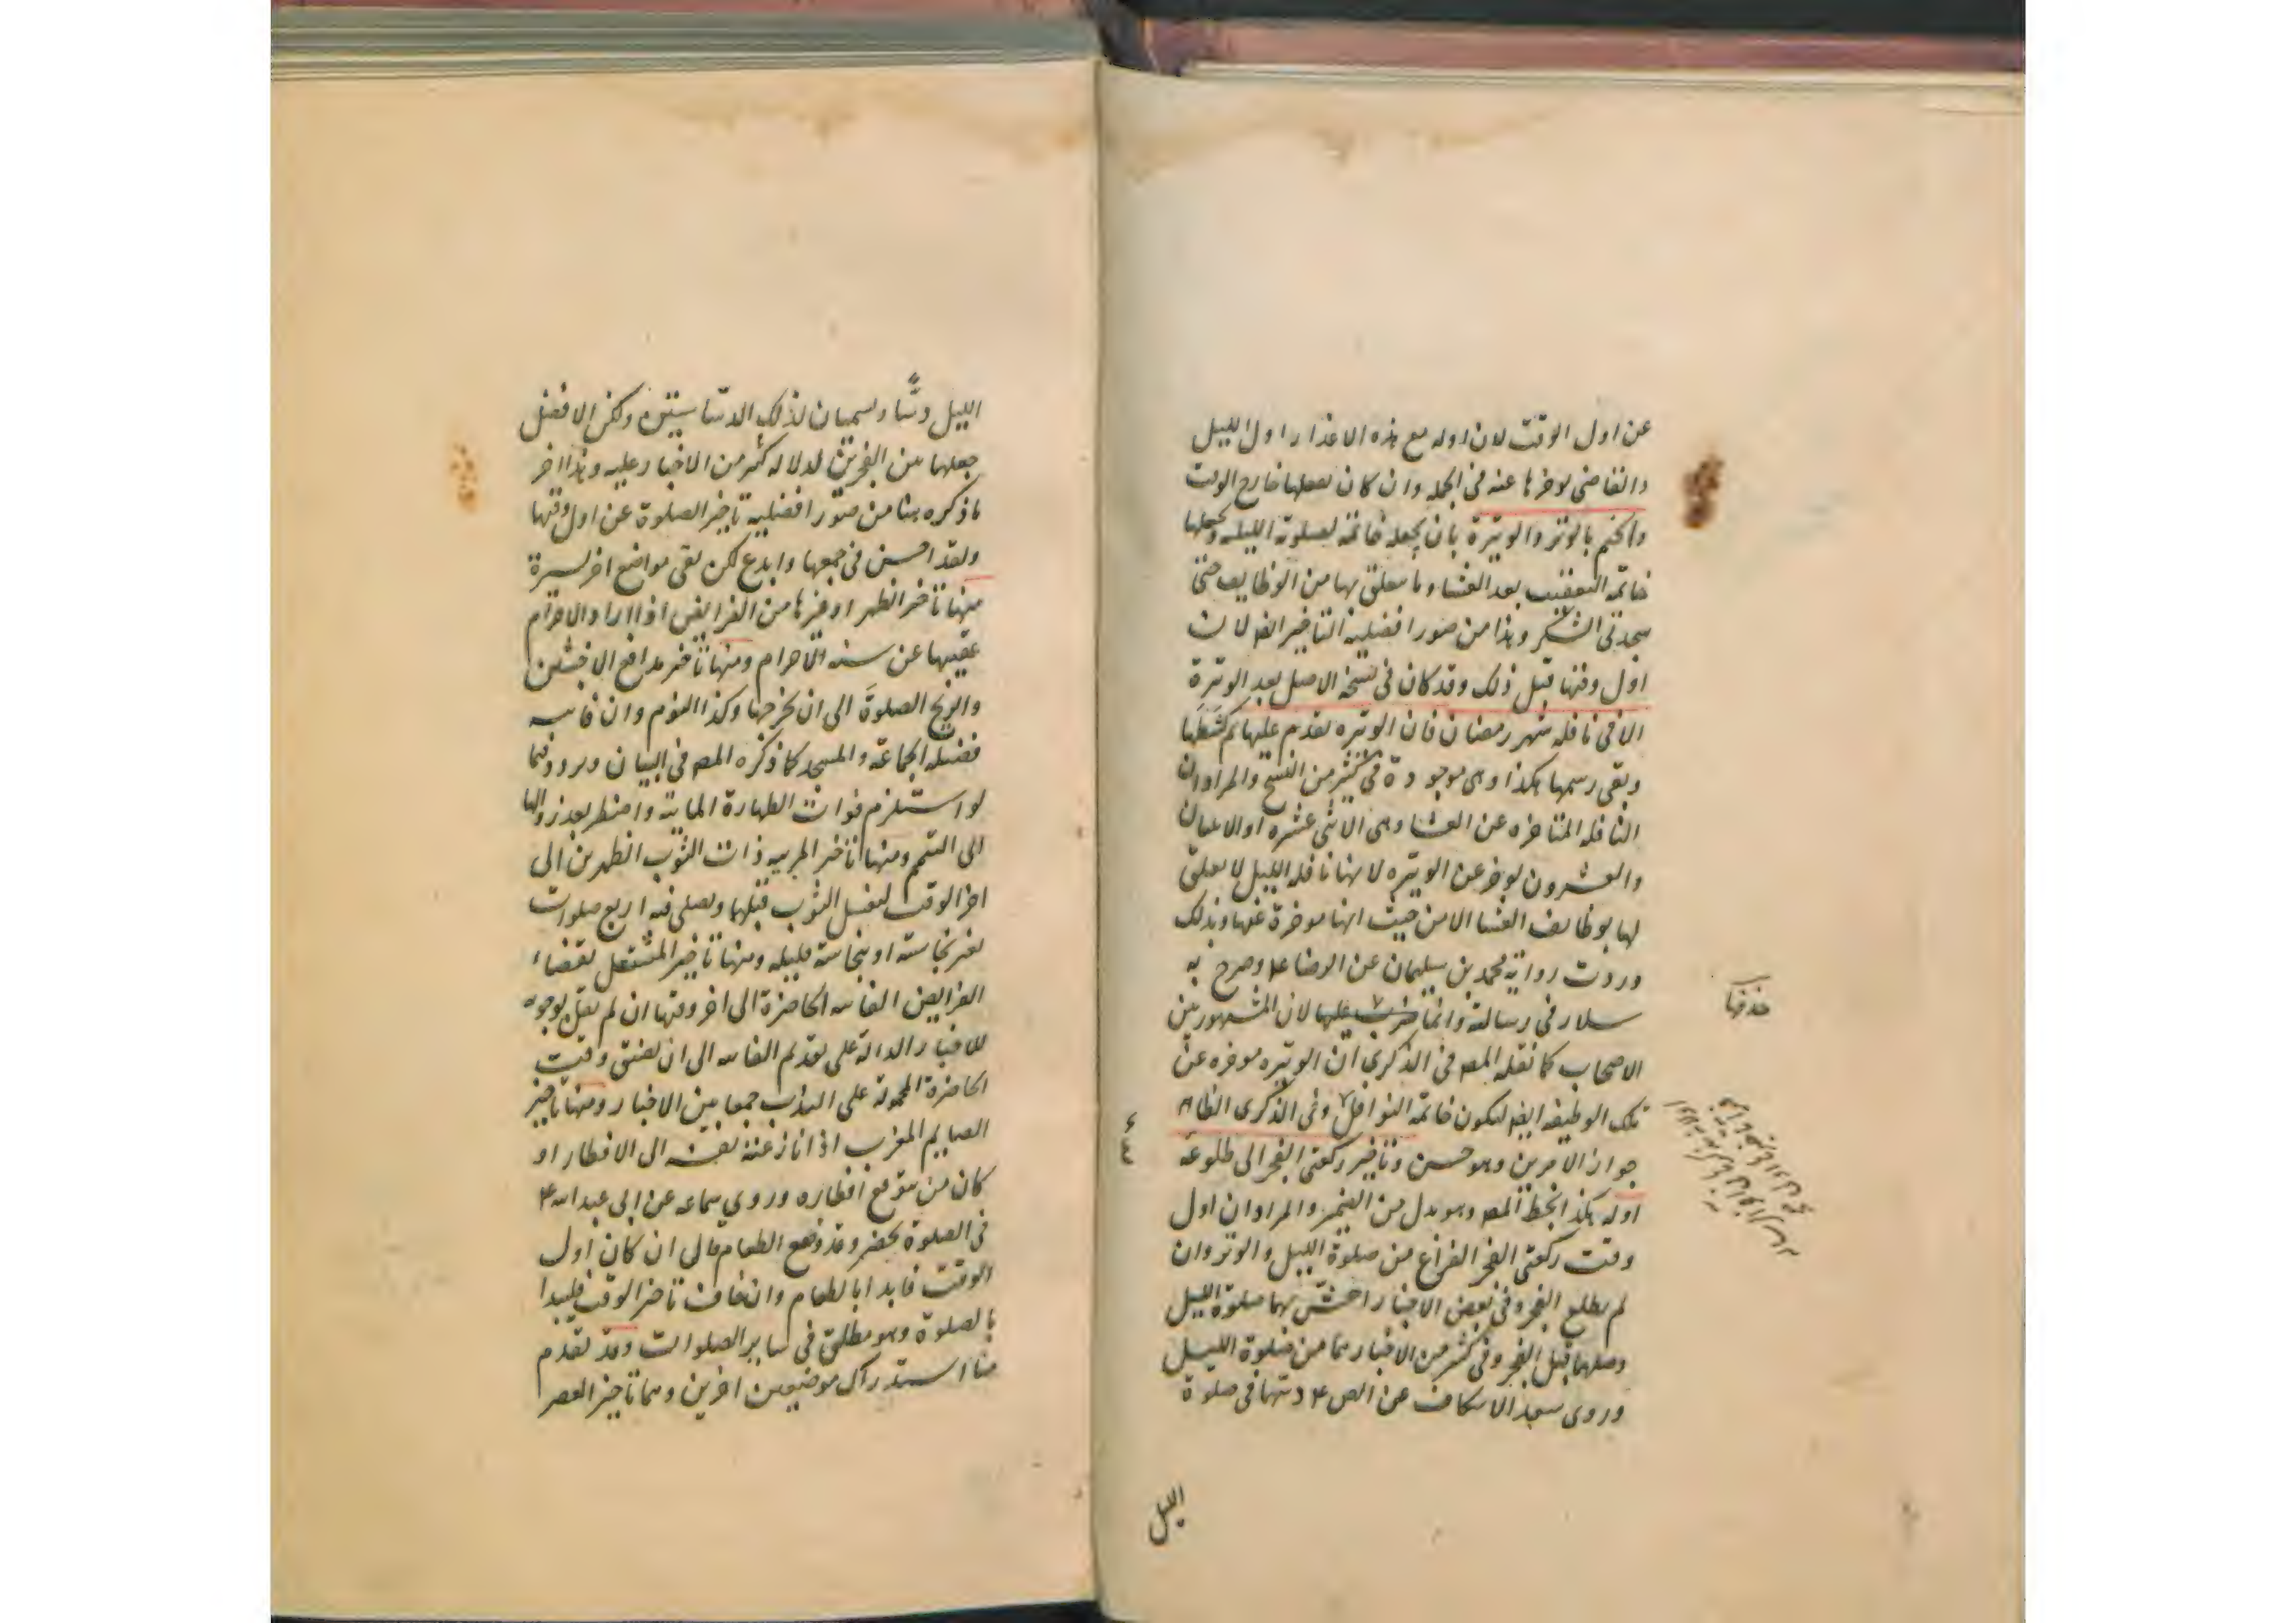 عن اول الوقت لان اوله مع هذه الاعذار اول الليل
والقاضى يوخرها عنه فى الجمله وان كان يصليها خارج الوقت
والختم بالوتر والوتيرة بان يجعله خاتمة لصلوة الليله ويجعلها
خاتمه التعقيب بعد العشاء وما يتعلق بها من الوظايف حتى
سجدتى الشكر وهذا من صور افضلية التاخير ايضا لان
اول وقتها قبل ذلك وقد كان فى نسخة الاصل بعد الوتيرة
الا فى نافله شهر رمضان فان الوتيره تقدم عليها ثم كشطها
وبقى رسمها هكذا وهى موجودة فى كثير من النسخ والمراد ان
النافله المتاخره عن العشا وهى الاثنى عشره او الاثنان
والعشرون يوخر عن الوتيره لانها نافله الليل لا تعلق
لها بوظايف العشا الا من حيث انها موخرة عنها وبذلك
وردت رواية محمد بن سليمان عن الرضا ع وصرح به
سلار فى رسالته وانما ضرب عليها لان المشهور بين
الاصحاب كما نقله المص فى الذكرى ان الوتيره موخره عن
تلك الوظيفه ايضا لتكون خاتمة النوافل وفى الذكرى الظاهر
جواز الامرين وهو حسن وتاخير ركعتى الفجر الى طلوعه
اوله هكذا بخط المص وهو بدل من الضمير والمراد ان اول
وقت ركعتى الفجر الفراغ من صلوة الليل والوتر وان
لم يطلع الفجر وفى بعض الاخبار احش بهما صلوة الليل
وصلهما قبل الفجر وفى كثير من الاخبار هما من صلوة الليل
وروى سعد الاسكاف عن الص ع دسّها فى صلوة
حذفها
الليل
الليل دسّا ويسميان لذلك الدساسيتين ولكن الافضل
جعلهما بين الفجرين لدلاله كثير من الاخبار عليه وهذا اخر
ما ذكره هنا من صور افضلية تاخير الصلوة عن اول وقتها
ولقد احسن فى جمعها وابدع لكن بقى مواضع اخر يسيرة
منها تاخير الظهر او غيرها من الفرايض اذا اراد الاحرام
عقيبها عن سنه الاحرام ومنها تاخير مدافع الاخبثين
والريح الصلوة الى ان يخرجها وكذا النوم وان فاتته
فضيله الجماعة والمسجد كما ذكره المص فى البيان
لو استلزم فوات الطهارة المائية واضطر بعد زوالها
الى التيمم ومنها تاخير المربيه ذات الثوب الظهرين الى
اخر الوقت لتغسل الثوب قبلها وتصلى فيه اربع صلوات
بغير نجاسة او بنجاسة قليله ومنها تاخير المشتغل بقضاء
الفرايض الفائته الحاضرة الى اخر وقتها ان لم نقل بوجوبه
للاخبار الدالة على تقديم الفائته الى ان يضيق وقت
الحاضرة المحمولة على الندب جمعا بين الاخبار ومنها تاخير
الصايم المغرب اذا نازعته نفسه الى الافطار او
كان من يتوقع افطاره وروى سماعه عن ابى عبد الله ع
فى الصلوة يحضر وقد وضع الطعام قال ان كان اول
الوقت فابدا بالطعام وان خاف تاخير الوقت فليبدا
بالصلوة وهو مطلق فى ساير الصلوات وقد تقدم
منا استدراك موضعين اخرين وهما تاخير العصر